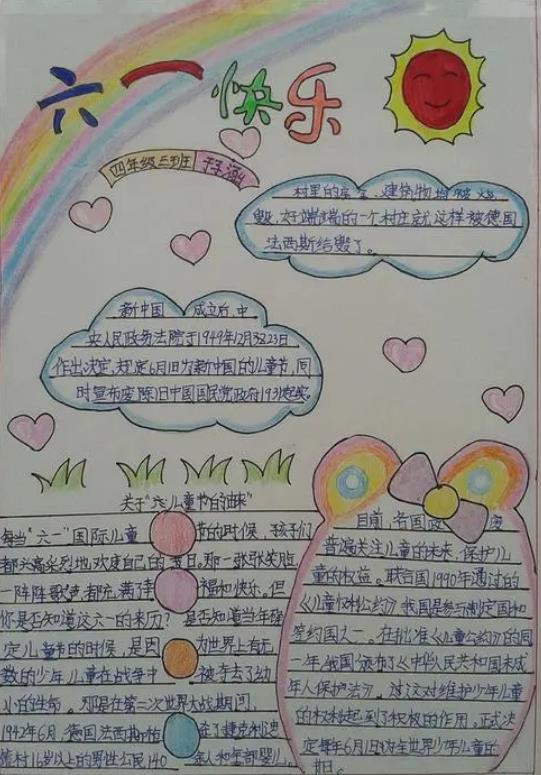 六一快乐
四年级三班
村里的房舍、建筑物均被烧
毁，好端端的一个村庄就这样被德国
法西斯给毁了。
新中国 成立后，中
央人民政务法院于1949年12月3823日
作出决定，规定6月1日为新中国的儿童节，同
时宣布废除旧中国国民党政府1931起实。
关于“六一儿童节的由来”
每当“六一”国际儿童节的时候，孩子们
都兴高采烈地欢度自己的节日。那一张张笑脸
一阵阵歌声都充满了幸福和快乐。但
你是否知道这六一的来历？是否知道当年确
定儿童节的时候，是因为世界上有无
数的少年儿童在战争中被夺去了幼
小的生命。那是在第二次世界大战期间，
1942年6月，德国法西斯枪杀了捷克利迪
策村16岁以上的男性公民140余人和全部婴儿，
目前，各国政
普遍关注儿童的未来，保护儿
童的权益。联合国1990年通过的
《儿童权利公约》我国是参与制定国和
签约国之一。在批准《儿童公约》的同
一年我国颁布了《中华人民共和国未成
年人保护法》。过这对维护少年儿童
的权利起到了积极的作用。正式决
定每年6月1日为全世界少年儿童的
节日。